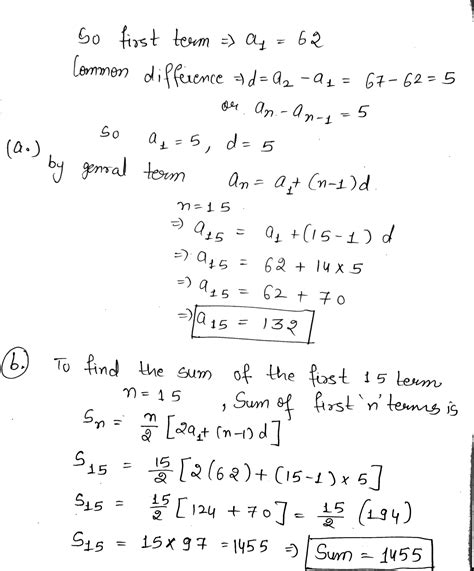 So first term => a₁ = 62
Common difference => d = a₂ - a₁ = 67 - 62 = 5
or aₙ - aₙ₋₁ = 5
So a₁ = 5, d = 5
(a.) by genral term aₙ = a₁ + (n-1) d
n = 15
=> a₁₅ = a₁ + (15-1) d
=> a₁₅ = 62 + 14 × 5
=> a₁₅ = 62 + 70
=> a₁₅ = 132
(b.) To find the sum of the first 15 term
n = 15 , Sum of first 'n' terms is
Sₙ = n/2 [2a₁ + (n-1) d]
S₁₅ = 15/2 [2(62) + (15-1) × 5]
S₁₅ = 15/2 [124 + 70] = 15/2 (194)
S₁₅ = 15 × 97 = 1455 => Sum = 1455